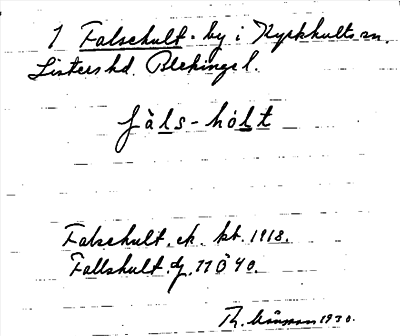 1 Falschult. by i Kyrkhults sn.
Listers hd. Blekinge l.
fàls-hólt
Falschult. ek. kt. 1918.
Fallshult. dj. 1840.
Th. 1930.